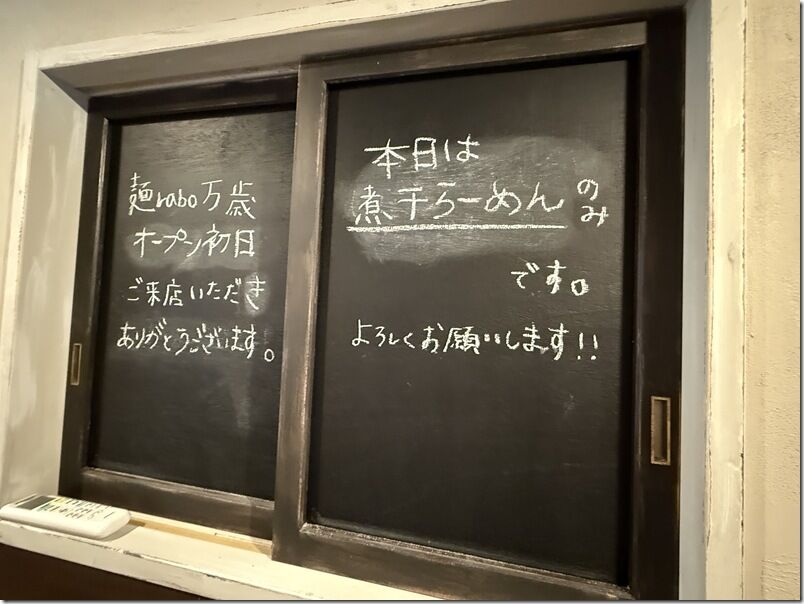 麺rabo万歳
オープン初日
ご来店いただき
ありがとうございます。
本日は
煮干らーめんのみ
です。
よろしくお願いします!!